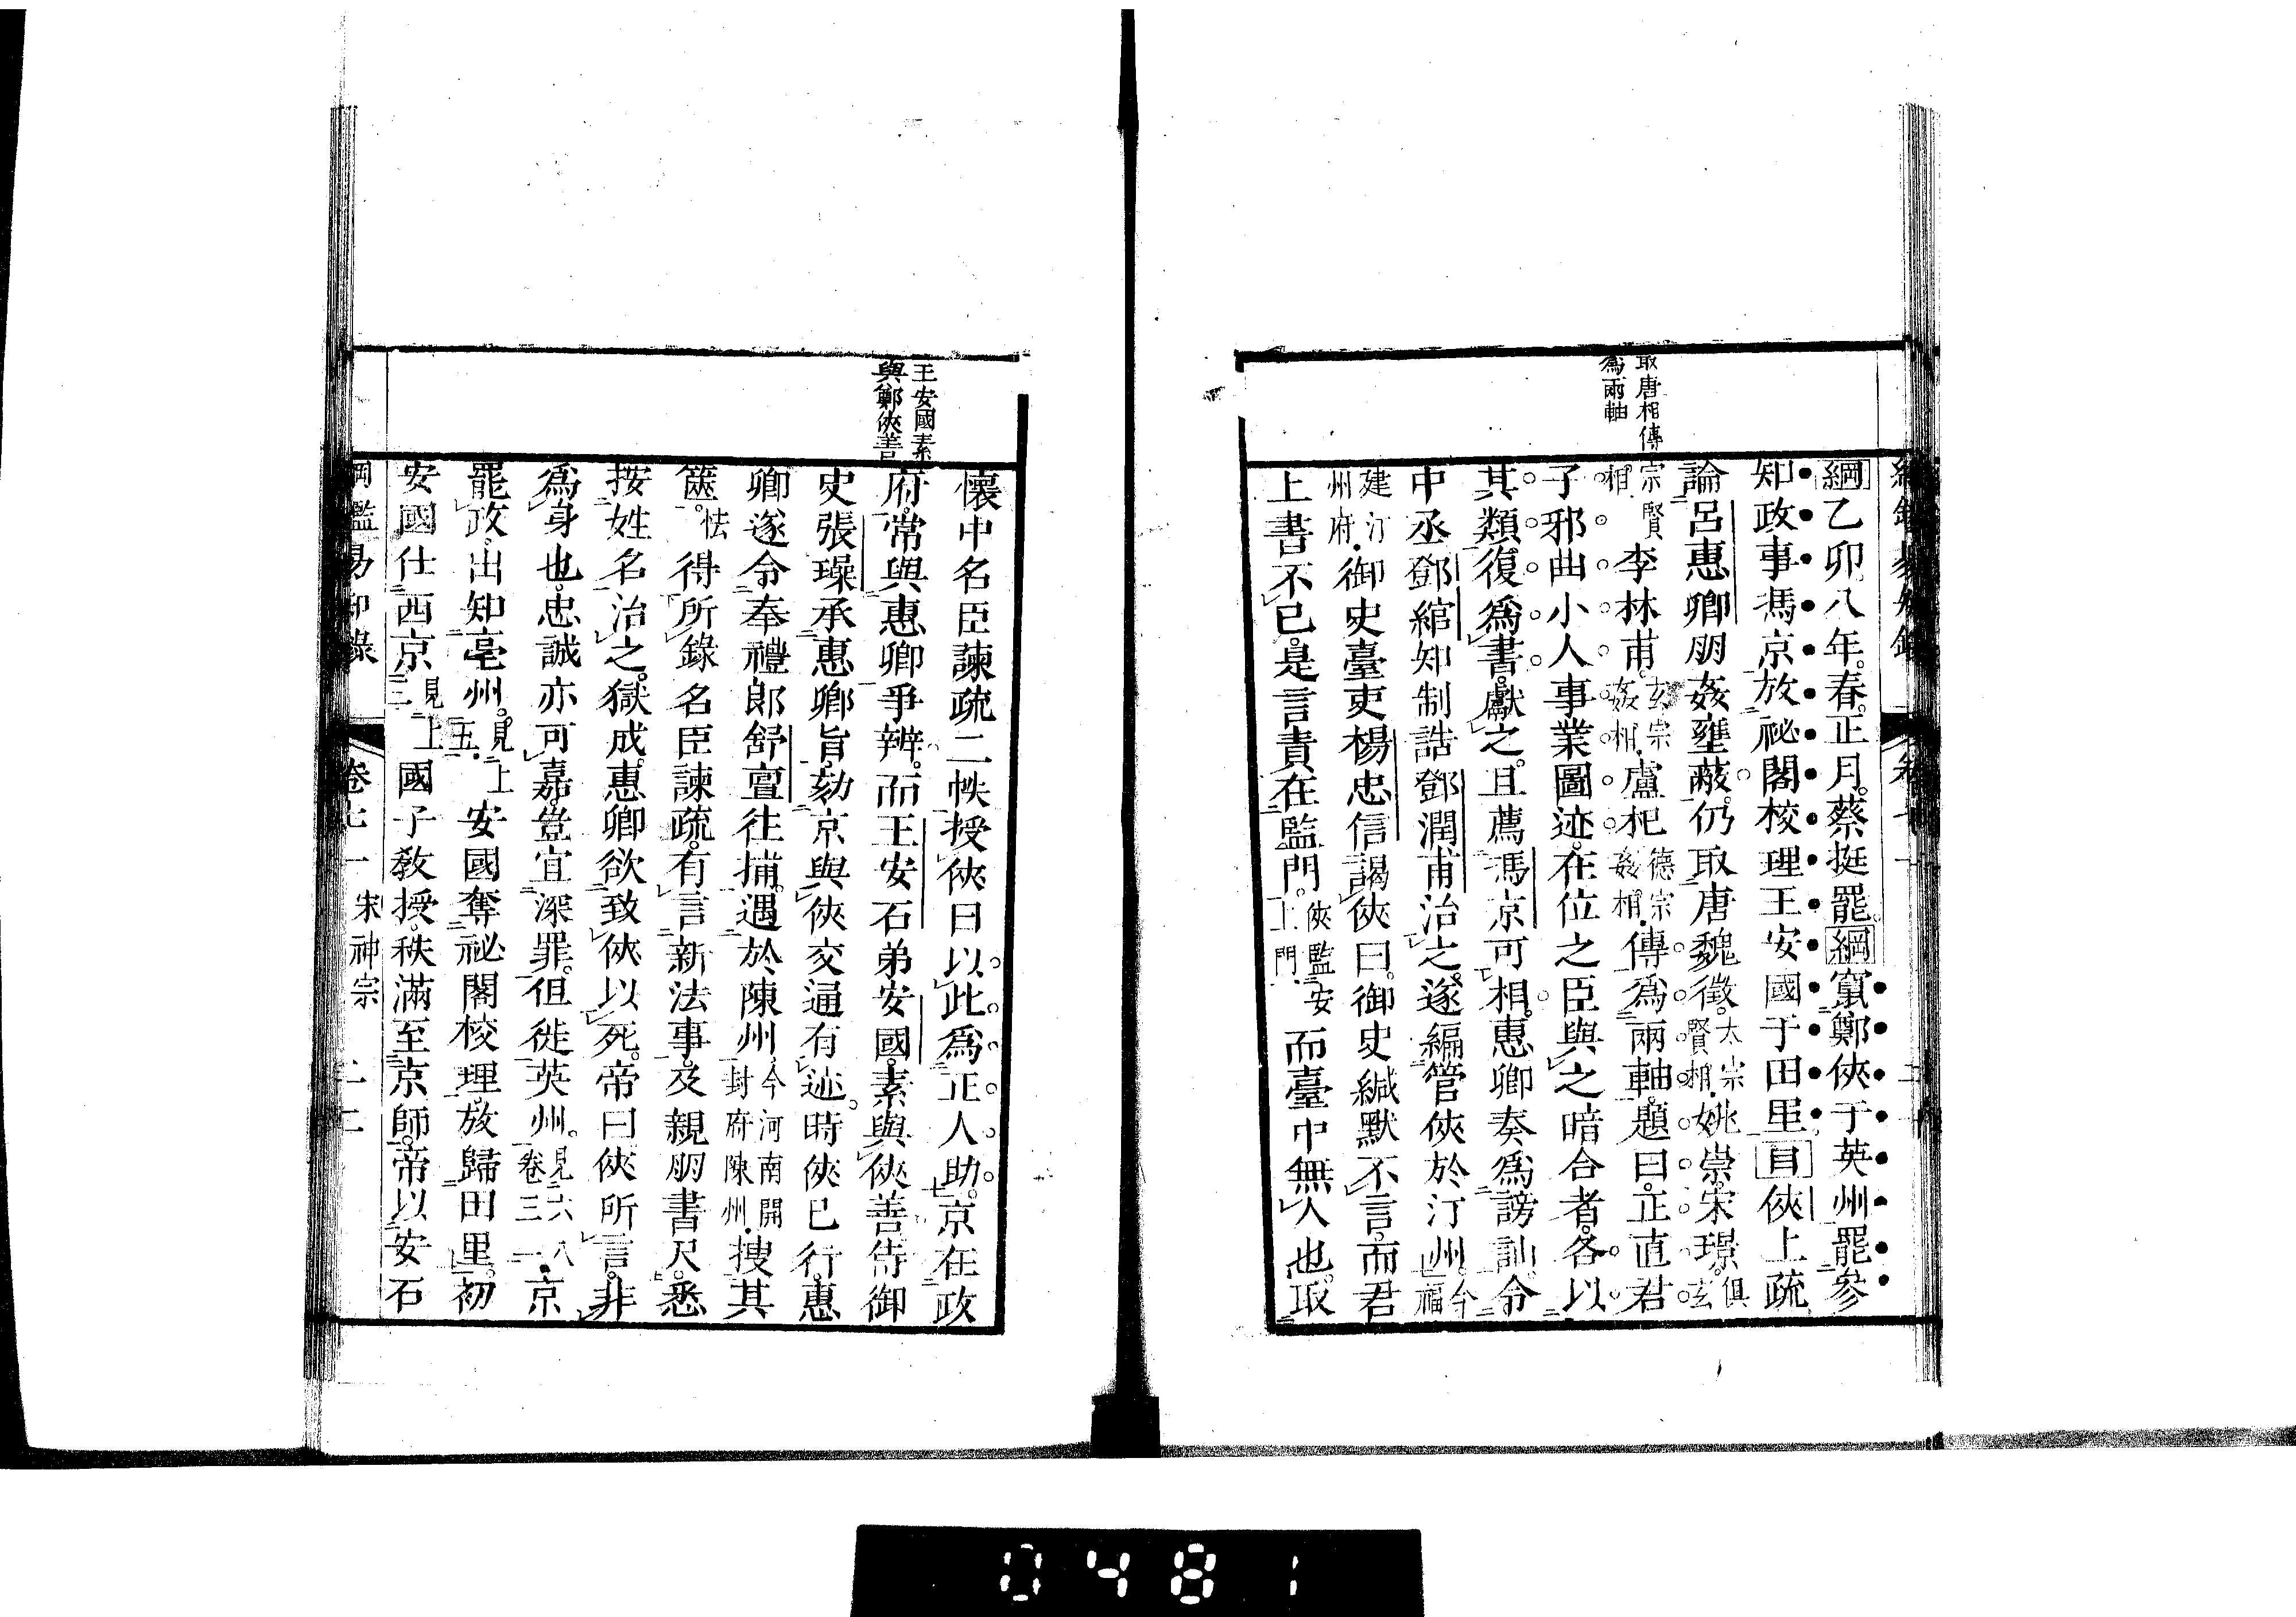 取唐相傳
為兩軸
綱乙卯八年。春。正月。蔡挺罷。綱竄鄭俠于英州。罷參
知政事馮京。放祕閣校理王安國于田里。目俠上疏
論呂惠卿朋姦壅蔽。仍取唐魏徵。太宗賢相。姚崇。宋璟。俱玄
宗賢相。李林甫。玄宗姦相。盧杞。德宗姦相。傳為兩軸。題曰。正直君
子邪曲小人事業圖迹。在位之臣與之暗合者。各以
其類復為書。獻之。且薦馮京可相。惠卿奏為謗訕。令
中丞鄧綰知制誥鄧潤甫治之。遂編管俠於汀州。今福
建汀州府。御史臺吏楊忠信謁俠曰。御史緘默不言。而君
上書不已。是言責在監門。俠監安上門。而臺中無人也。取
王安國素
與鄭俠善
懷中名臣諫疏二帙授俠曰。以此為正人助。京在政
府。常與惠卿爭辨。而王安石弟安國。素與俠善。侍御
史張璪承惠卿旨。劾京與俠交通有迹。時俠已行。惠
卿遂令奉禮郎舒亶往捕。遇於陳州。今河南開封府陳州。搜其
篋。怯得所錄名臣諫疏。有言新法事及親朋書尺。悉
按姓名治之。獄成。惠卿欲致俠以死。帝曰俠所言。非
為身也。忠誠亦可嘉。豈宜深罪。但徙英州。見六八卷三一。京
罷政。出知亳州。見上五。安國奪祕閣校理。放歸田里。初
安國仕西京。見上三國子教授。秩滿至京師。帝以安石
綱鑑易知錄 卷七一 宋神宗 二二